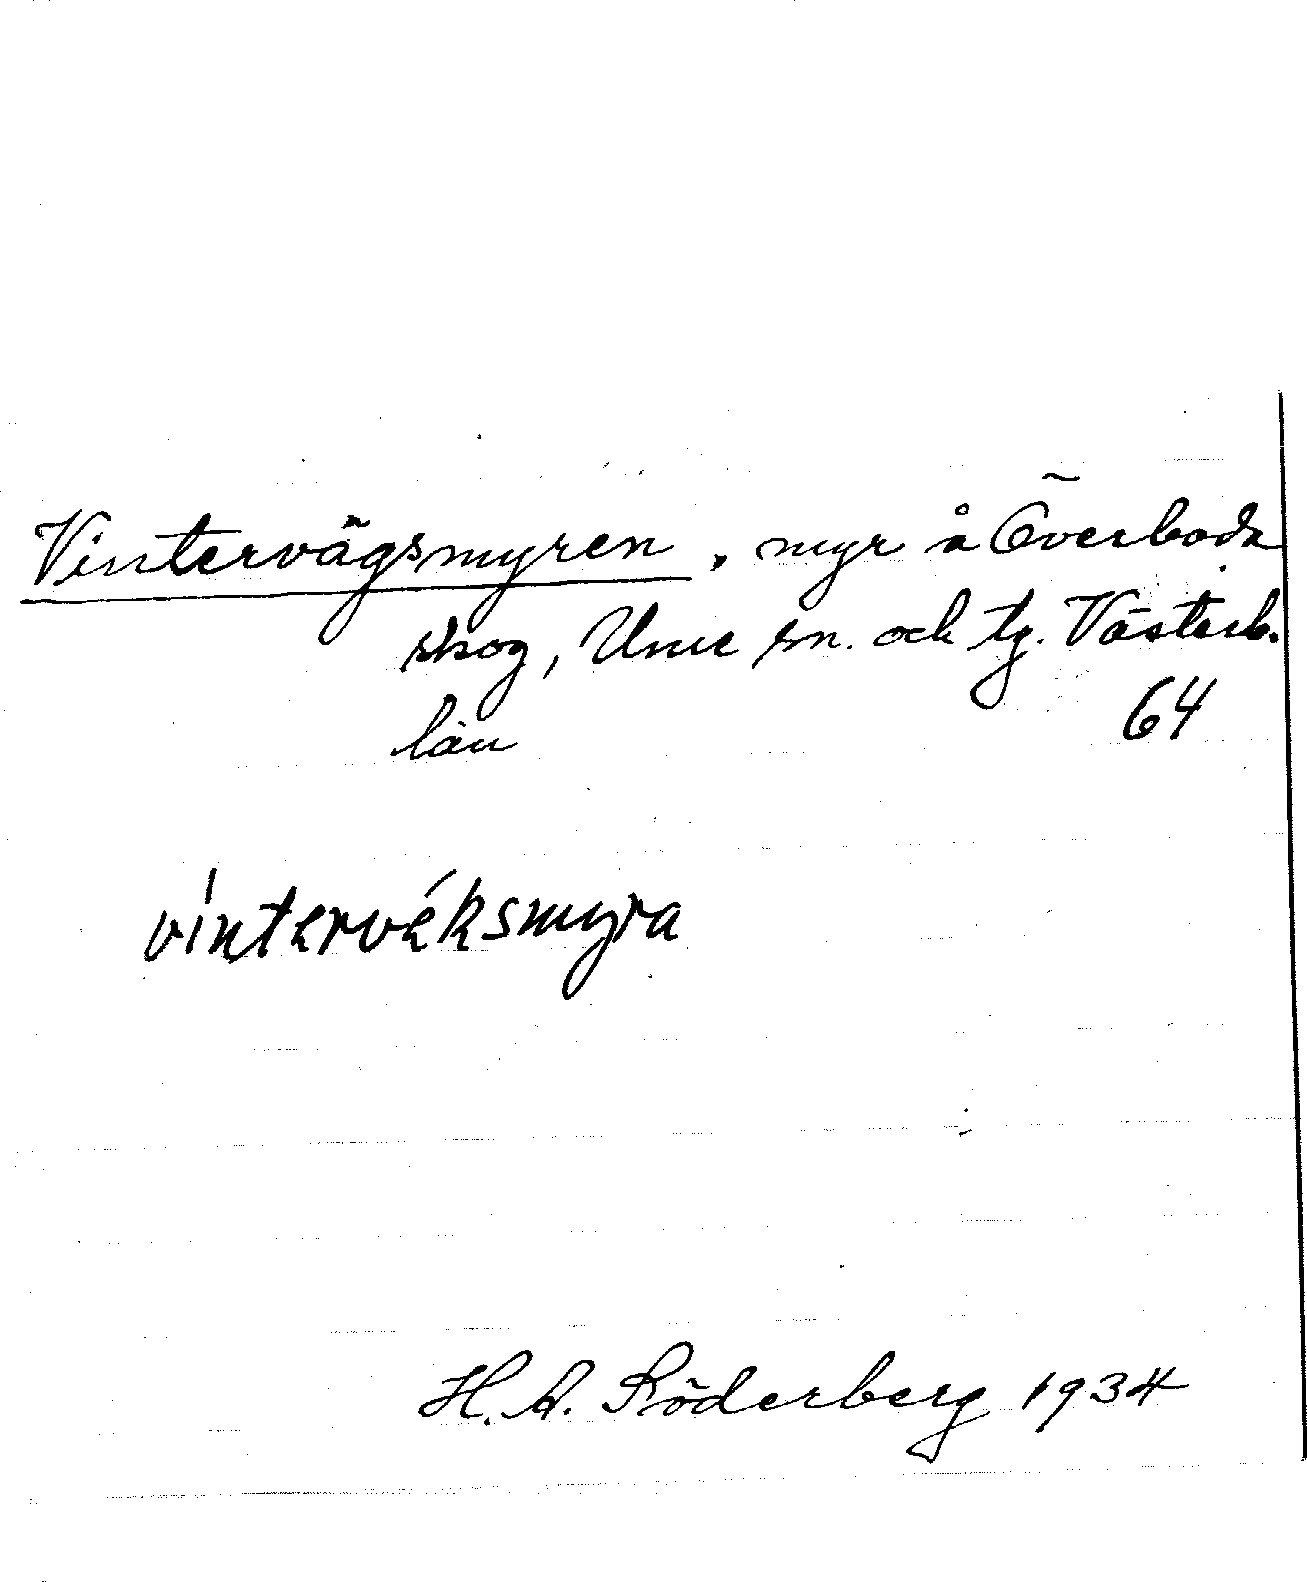 Vintervägsmyren, myr å Överboda
skog, Ume sn. och tg. Västerb.
län 64
víntervéksmyra
H. A. Söderberg 1934